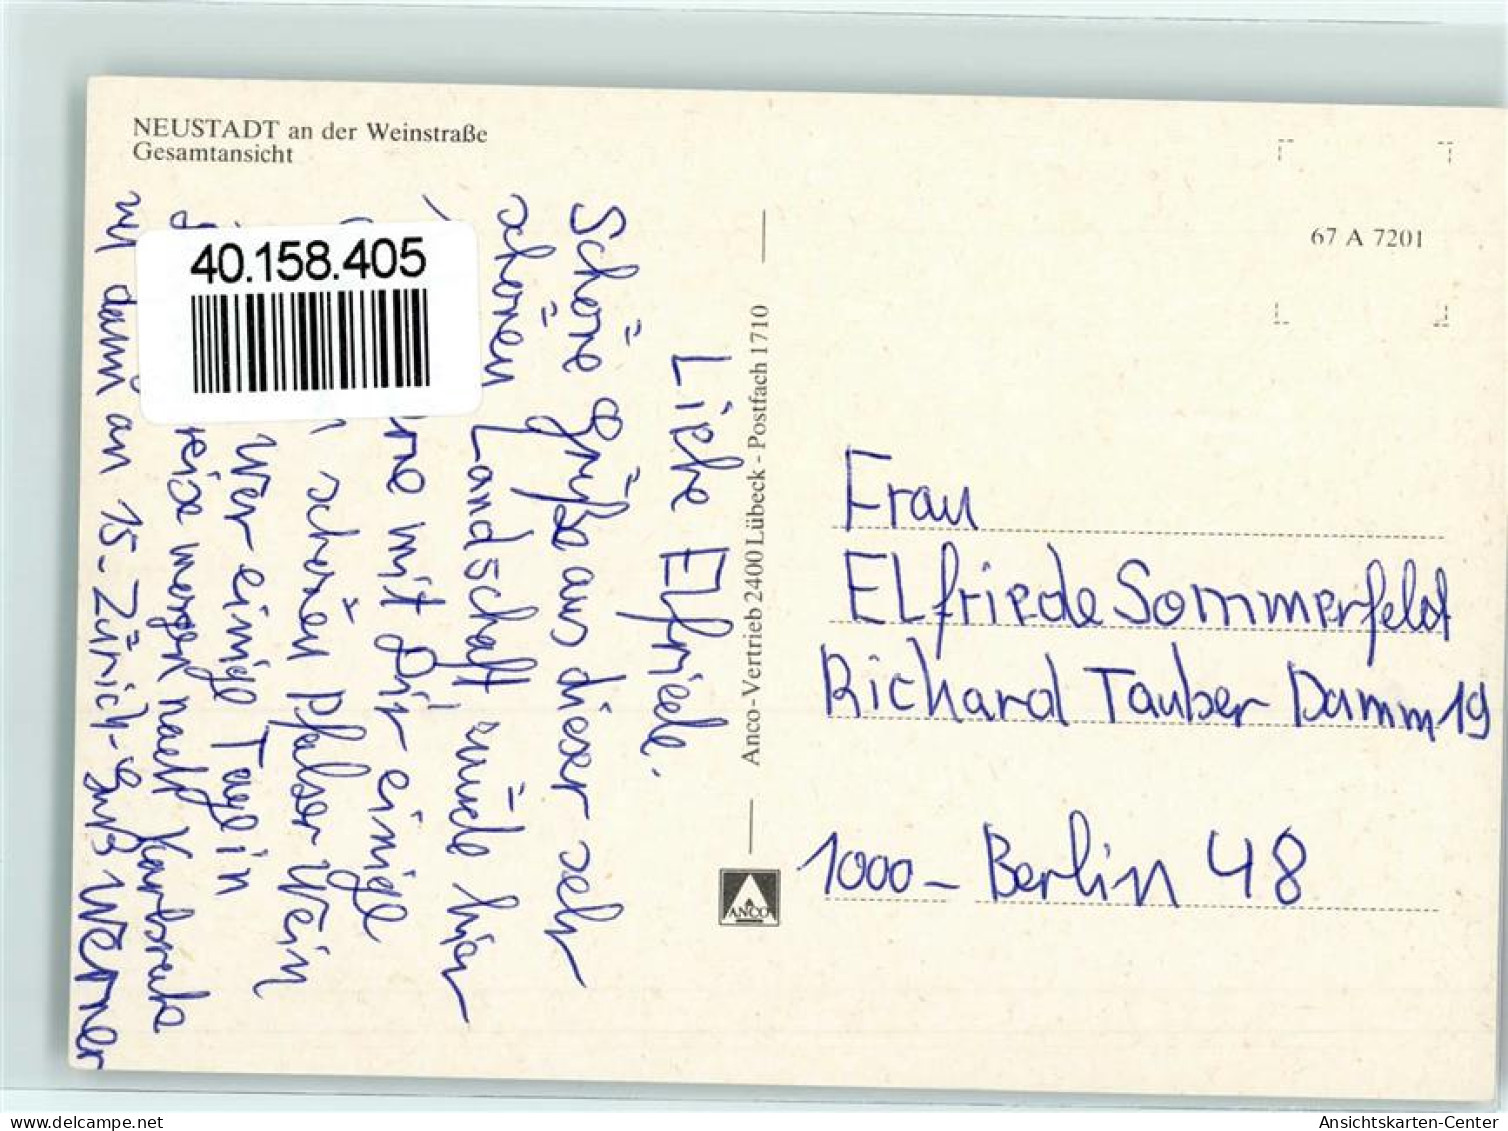 NEUSTADT an der Weinstraße
Gesamtansicht
40.158.405
Liebe Elfriede.
Schöne Grüße aus dieser sehr
schönen Landschaft
hier
mit Dir einige
schönen Pfalser Wein
Wer einige Tage in
morgen nach
dann an 15-Zürich-Gruß Werner
Anco-Vertrieb 2400 Lübeck - Postfach 1710
ANCO
67 A 7201
Frau
Elfriede Sommerfeld
Richard Tauber Damm 19
1000 - Berlin 48
oldthing.net
Ansichtskarten-Center